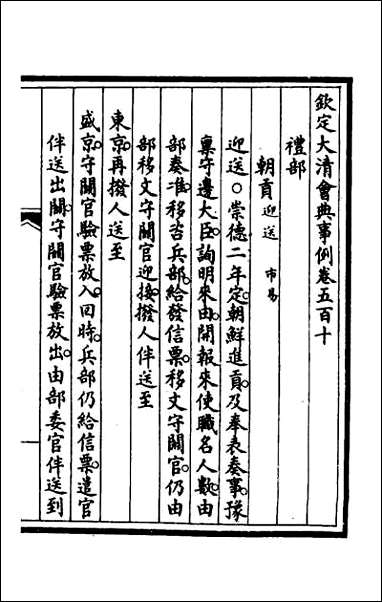 欽定大清會典事例卷五百十
禮部
朝貢迎送 市易
迎送○崇德二年定朝鮮進貢及奉表奏事豫
稟守邊大臣詢明來由開報來使職名人數由
部奏准移咨兵部給發信票移文守關官仍由
部移文守關官迎接撥人伴送至
東京再撥人送至
盛京守關官驗票放入回時兵部仍給信票遣官
伴送出關守關官驗票放出由部委官伴送到